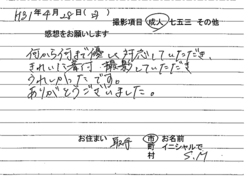 H31年4月28日(日)
撮影項目 成人 七五三 その他
感想をお願いします
何から何まで優しく対応していただき、
きれいに着付、撮影していただき
うれしかったです。
ありがとうございました。
お住まい 取手 市 町 村 お名前 イニシャルで S.M